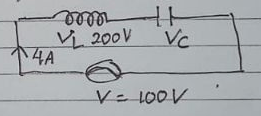 V_L 200V V_C
4A
V = 100V